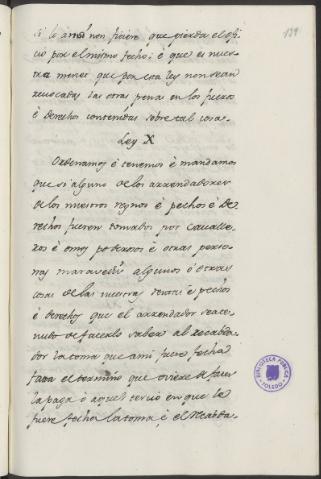 si lo ansi non ficiere que pierda el ofi
cio por el mismo fecho: è que es nues
tra merced que por esta ley non sean
revocadas las otras penas en los fueros
è derechos contenidas sobre tal cosa.
139
Ley X
Ordenamos è tenemos è mandamos
que si alguno de los arrendadores
de los nuestros reynos è pechos è de
rechos fueren tomados por cavalle
ros è omes poderosos è otras perso
nas maravedis algunos è otras
cosas de las nuestras rentas è pechos
è derechos que el arrendador sea te
nudo de facerlo saber al recabda
dor la toma que ansi fuere fecha
fasta el termino que oviere de facer
la paga è aquel tercio en que le
fuere fecha la toma, è el recabda.
BIBLIOTECA PUBLICA
TOLEDO